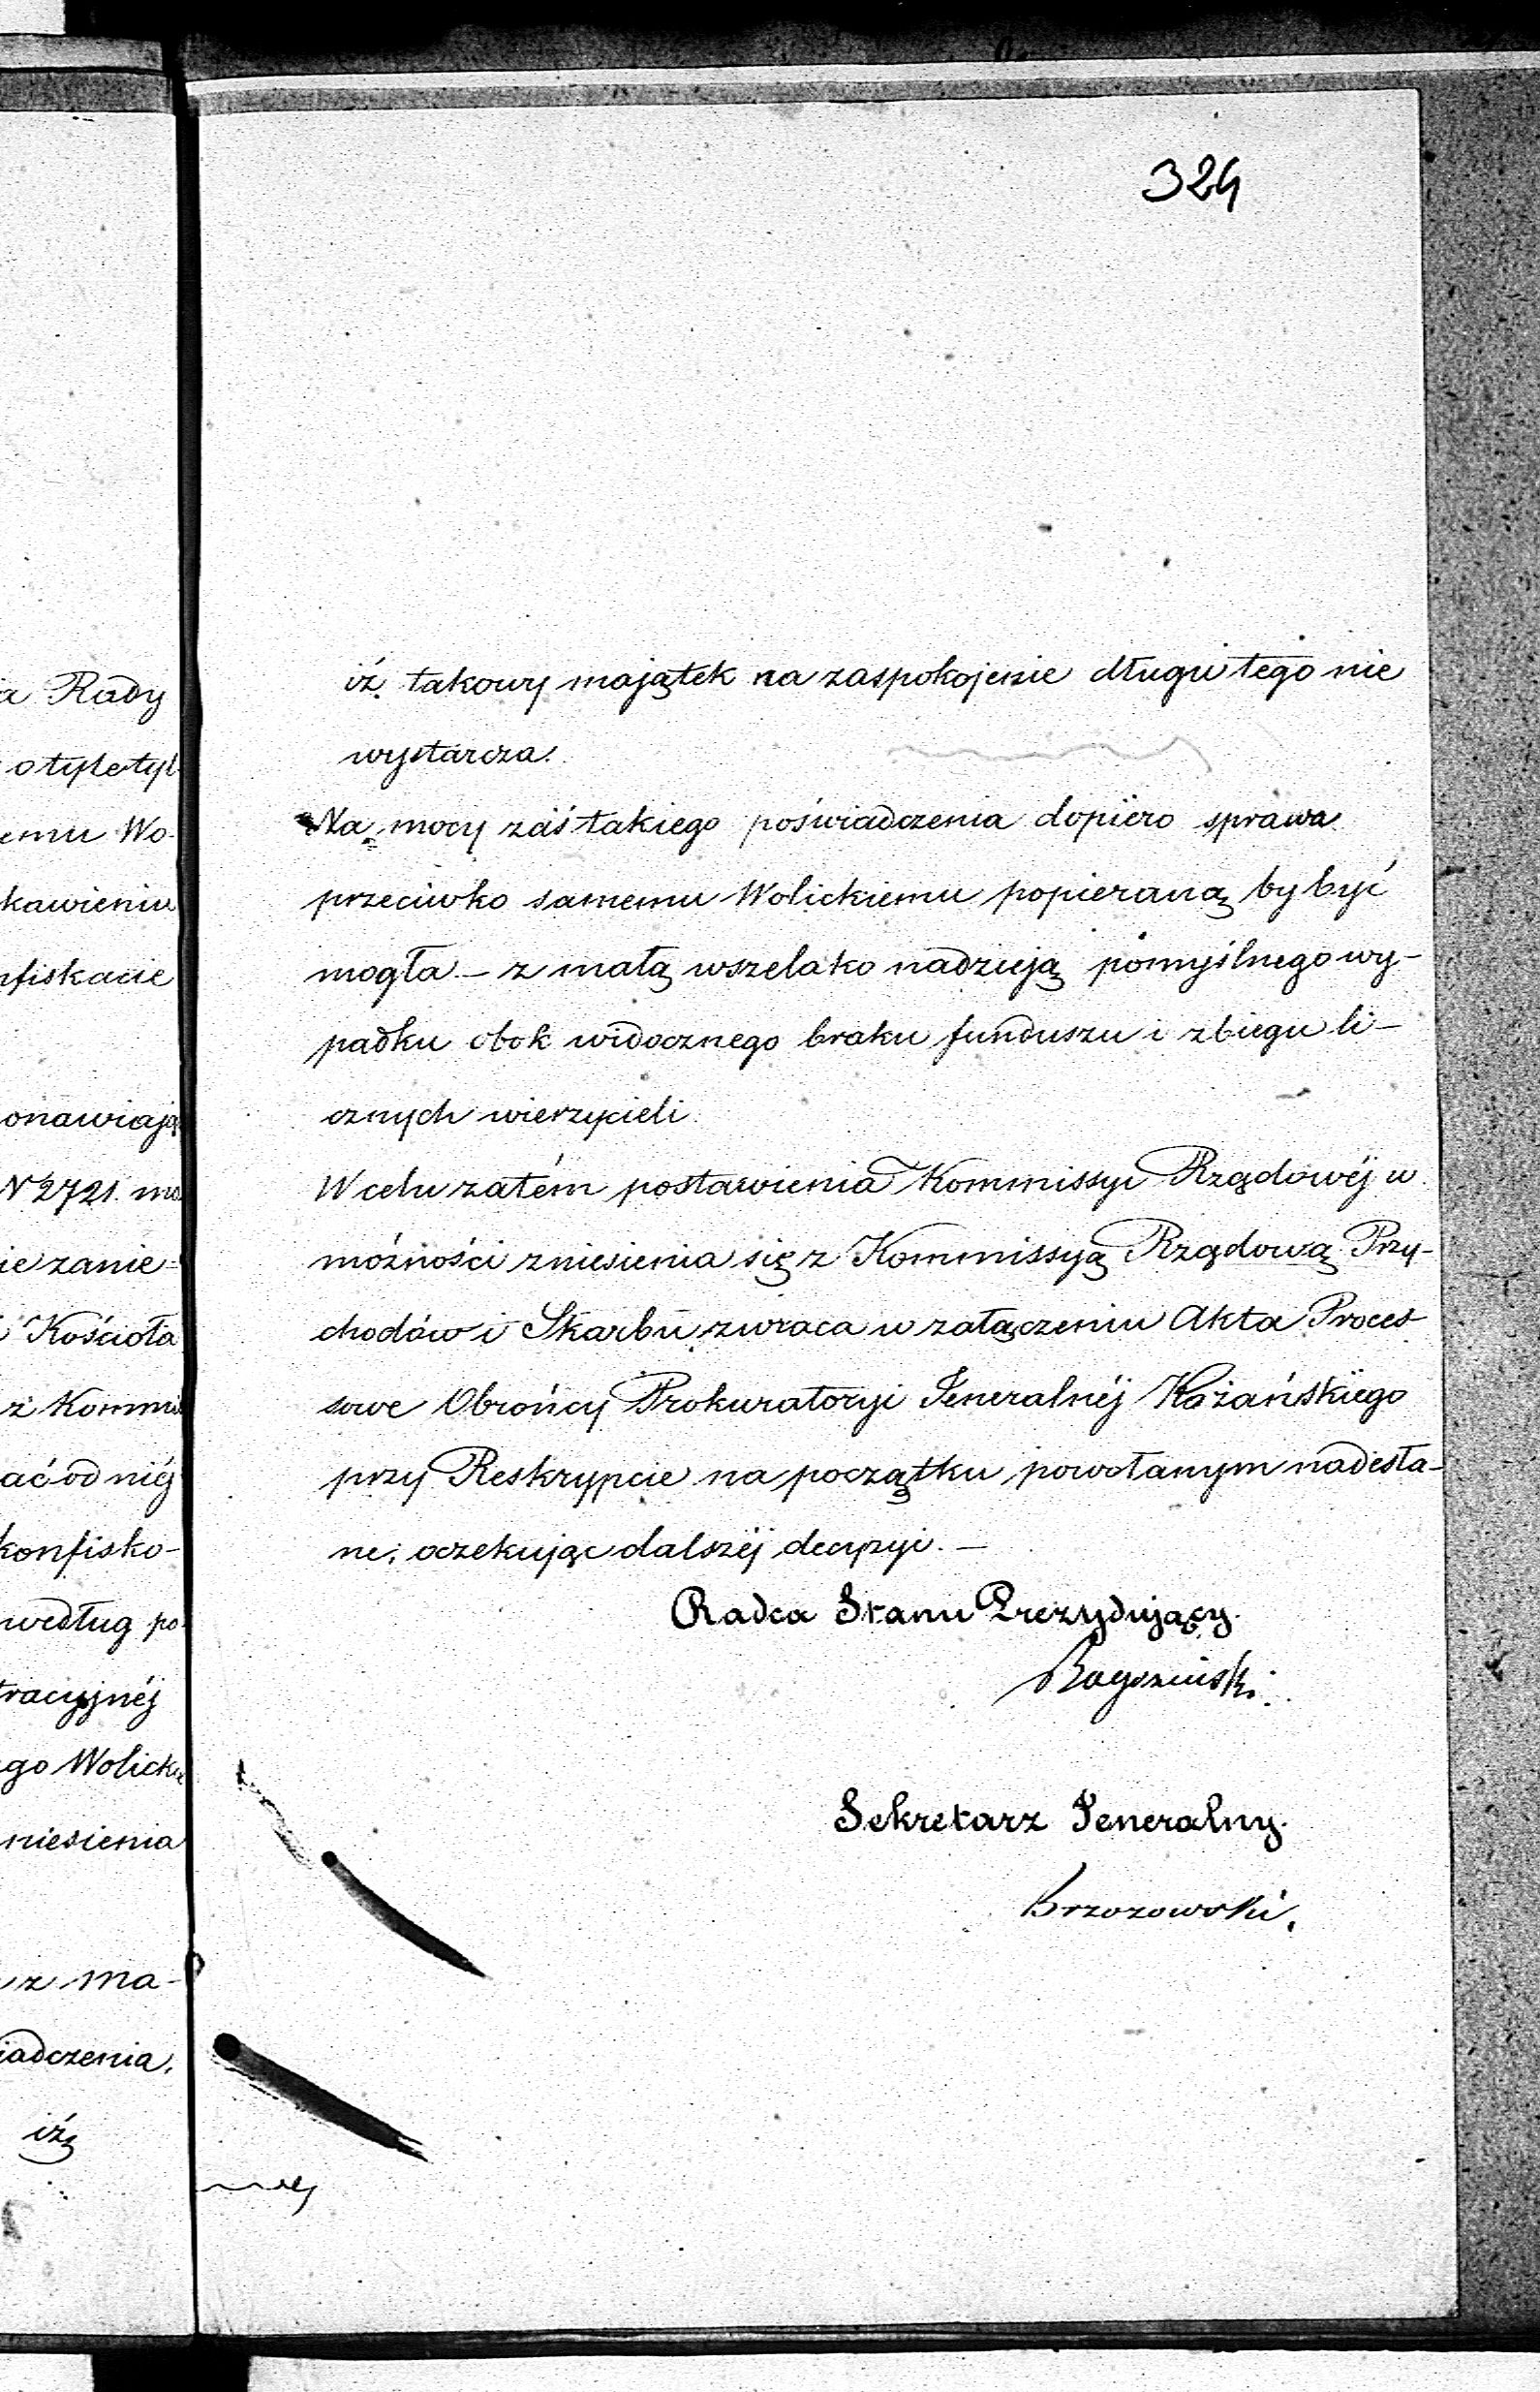 324
iż takowy majątek na zaspokojenie długu tego nie
wystarcza.
Na mocy zaś takiego poświadczenia dopiero sprawa
przeciwko samemu Wolickiemu popieraną by być
mogła – z małą wszelako nadzieją pomyślnego wy-
padku obok widocznego braku funduszu i zbiegu li-
cznych wierzycieli.
W celu zatém postawienia Kommissyi Rządowéj w
możności zniesienia się z Kommissyą Rządową Przy-
chodów i Skarbu zwraca w załączeniu Akta Proces
sowe Obrońcy Prokuratoryi Jeneralnéj Każańskiego
przy Reskrypcie na początku powołanym nadesła-
ne; oczekując dalszéj decyzyi. –
Radca Stanu Prezydujący.
Sekretarz Jeneralny.
Brzozowski.
a Rady
o tyle tyl
emu Wo-
kawieniu
nfiskacie
onawiają
N 2721. mo
ie zanie-
Kościoła
z Kommi
ać od niéj
konfisko-
według po
racyjnéj
go Wolicki
niesienia
z ma-
iadczenia,
iż